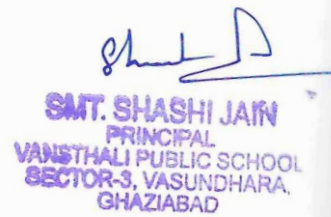 SMT. SHASHI JAIN
PRINCIPAL
VANSTHALI PUBLIC SCHOOL
SECTOR-3, VASUNDHARA,
GHAZIABAD